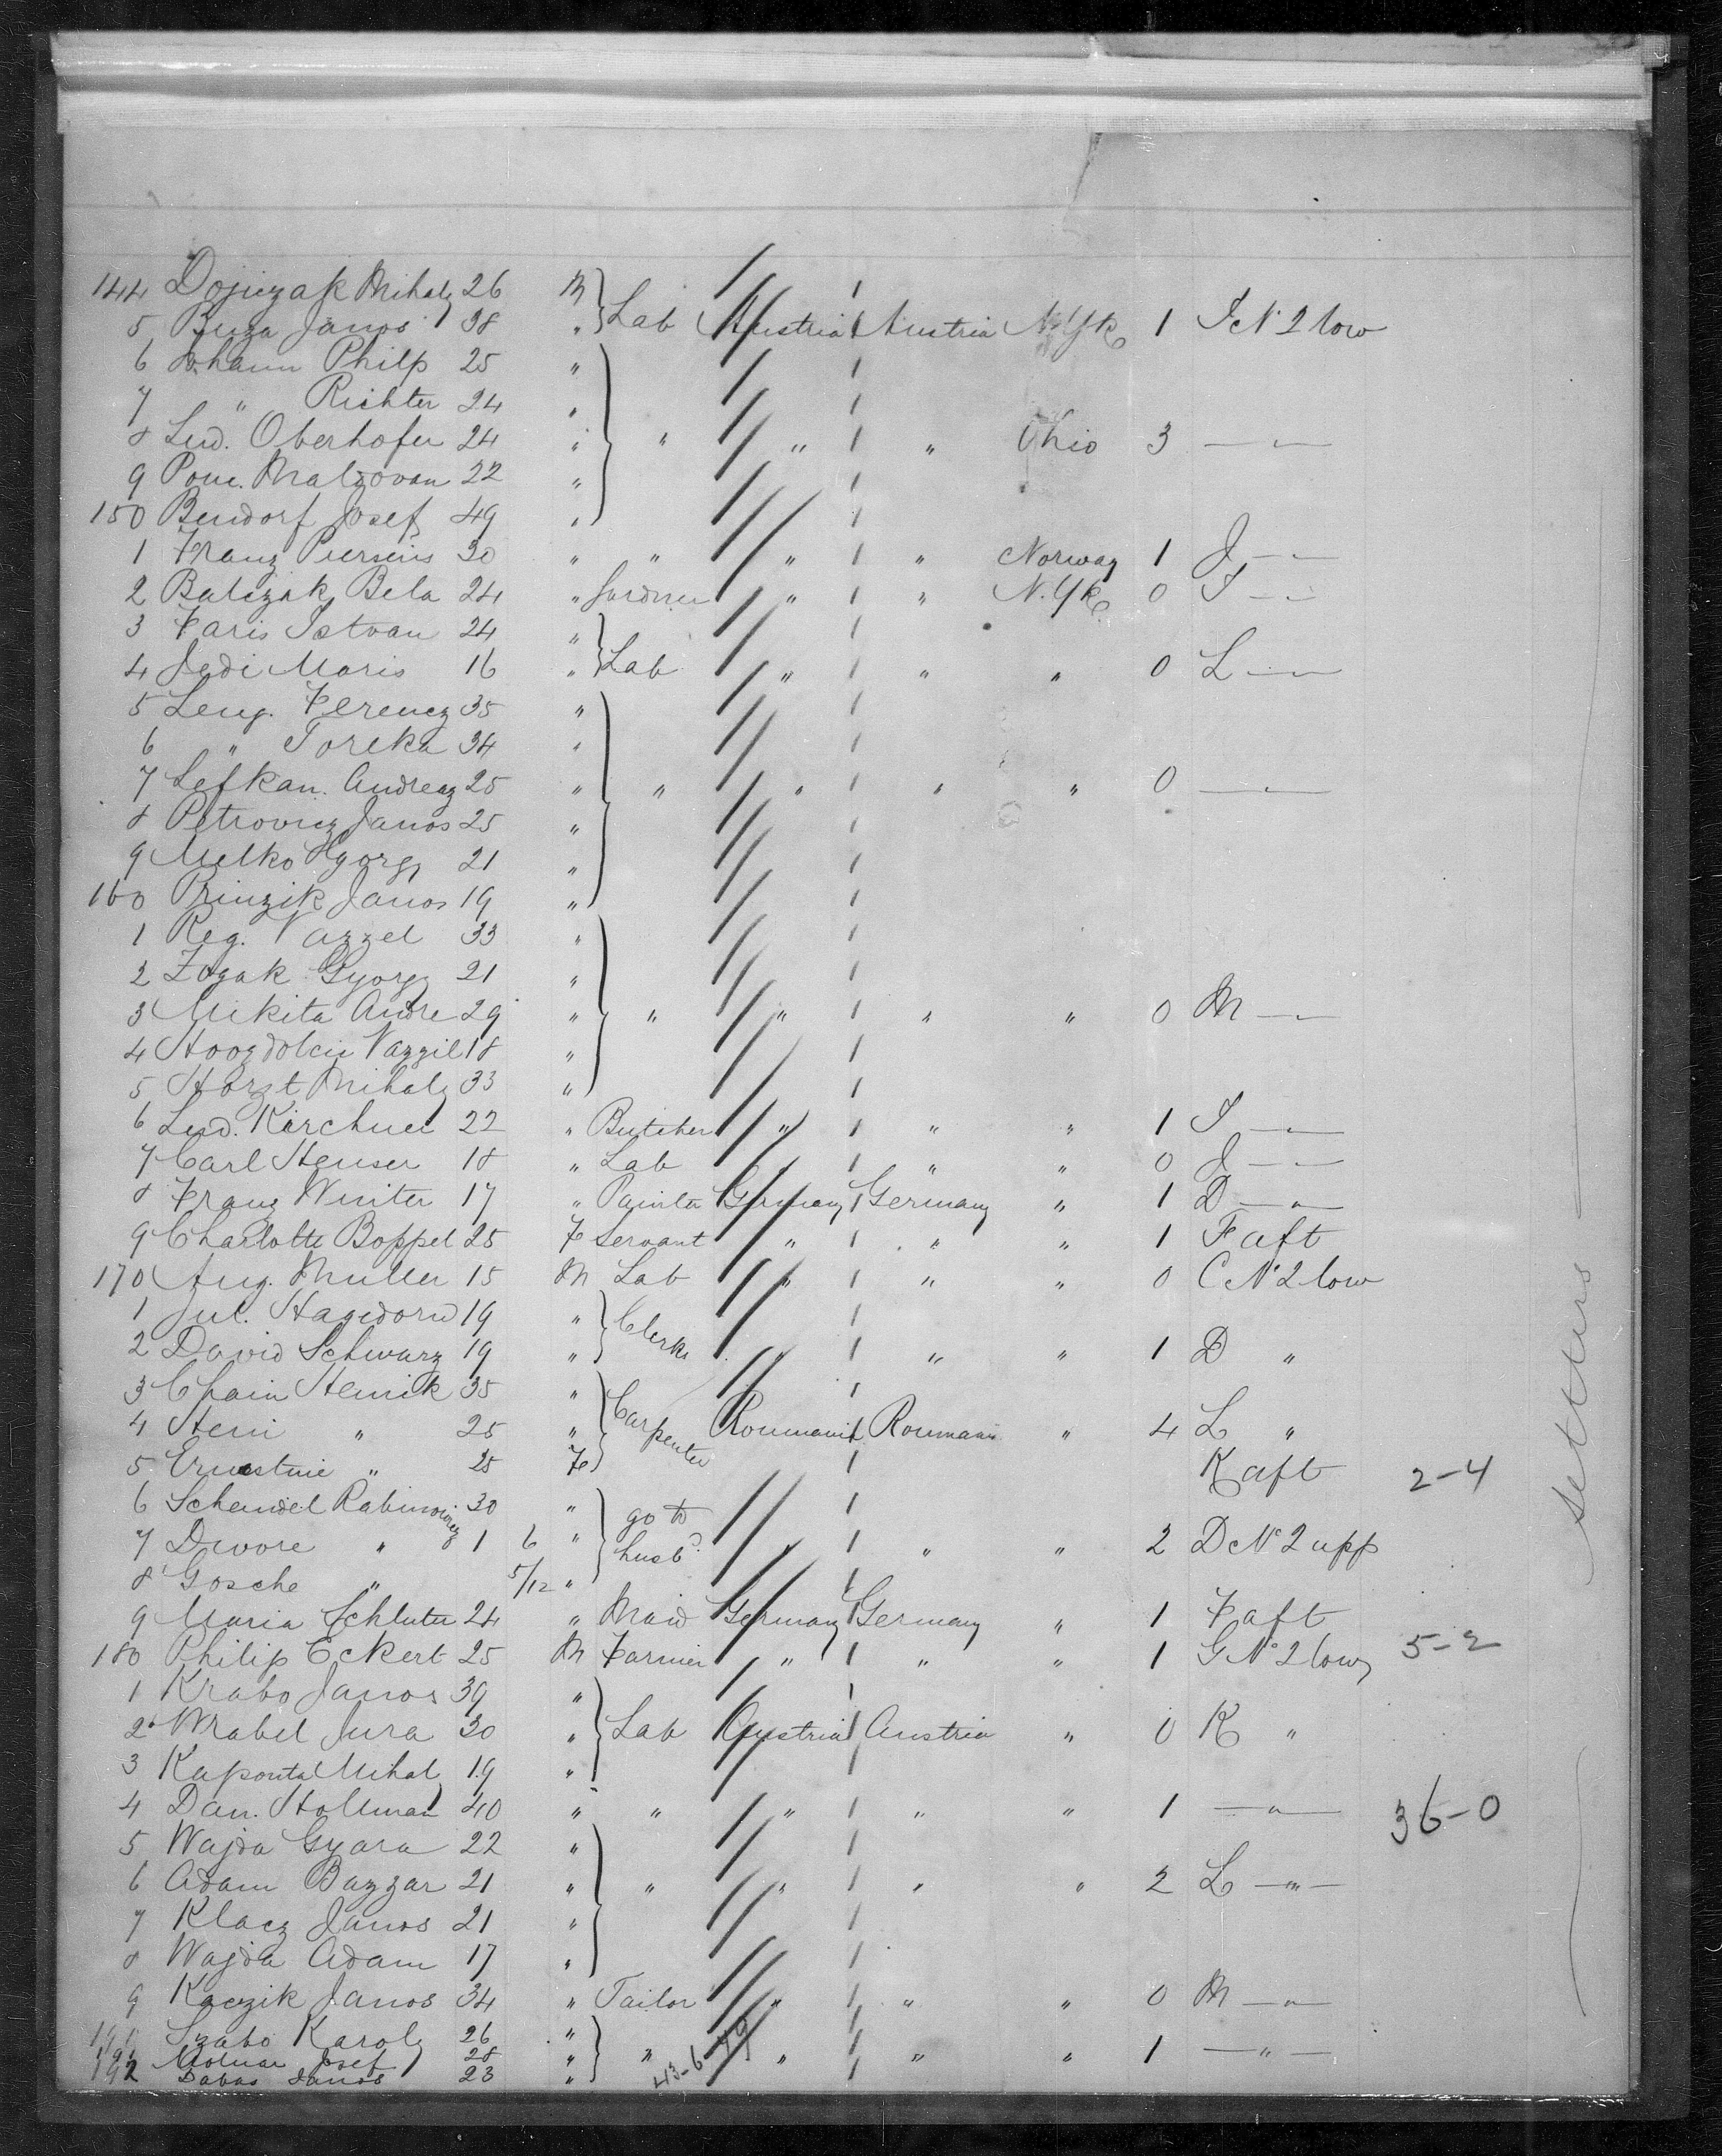 144 Dojiczak Mihaly 26 M
5 Buza Janos 38 " Lab Austria Austria N. Yk 1 I No 2 low
6 Johann Philp 25 "
7 " Richter 24 "
8 Lud. Oberhofer 24 " " " " Ohio 3 — " —
9 Pom. Maldovan 22 "
150 Bendorf Josef 49 "
1 Franz 30 " " " " Norway 1 J — " —
2 Balczak Bela 24 " Gardner " " N. Yk 0 I — " —
3 Faris Istvan 24 "
4 Jedi Moris 16 " Lab " " " 0 L — " —
5 Leng. Ferencz 35 "
6 " Toreka 34 "
7 Lefkan. Andreas 25 " " " " " 0 — " —
8 Petrovicz Janos 25 "
9 Melko Gyorg 21 "
160 Prinzik Janos 19 "
1 Reg. Vazzel 33 "
2 Zozak Gyorg 21 "
3 Mikita Andre 29 " " " " " 0 M — " —
4 Vazzil 18 "
5 Horzt Mihaly 33 "
6 Lud. Kirchner 22 " Butcher " " " 1 I — " —
7 Carl Henser 18 " Lab " " 0 J — " —
8 Franz Winter 17 " Painter Germany Germany " 1 D — " —
9 Charlotte Boppel 25 Fe Servant " " " 1 F aft
170 Aug. Muller 15 M Lab " " " 0 C No 2 low
1 Jul. Hagedorn 19 " Clerks
2 David Schwarz 19 " " " " 1 D "
3 Chaim Henrik 35 "
4 Heni " 25 " Carpenter Roumania Roumania " 4 L "
5 Ernestine " 25 Fe K aft 2-4
6 Scheindel Rabinowicz 30 " go to
7 Dwore " 1 6 " husbd " " " 2 D No 2 upp
8 Gosche " 5/12 "
9 Maria Schluter 24 " Maid Germany Germany " 1 F aft
180 Philip Eckert 25 M Farmer " " " 1 G No 2 low 5-2
1 Krabo Janos 39 "
2 Wrabel Jura 30 " Lab Austria Austria " 0 K "
3 Kapontal Mihaly 19 "
4 Dan. Hollman 40 " " " " " 1 — " — 36-0
5 Wajda Gyara 22 "
6 Adam Bazzar 21 " " " " " 2 L — " —
7 Klacz Janos 21 "
8 Wajda Adam 17 "
9 Kaczik Janos 34 " Tailor " " " 0 M — " —
190 Szabo Karoly 26 "
191 Molnar Josef 28 " " " " " 1 — " —
192 Dabas Janos 23 "
43-6-49
settlers